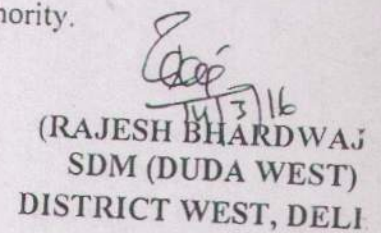 hority.
14/3/16
(RAJESH BHARDWAJ
SDM (DUDA WEST)
DISTRICT WEST, DELI